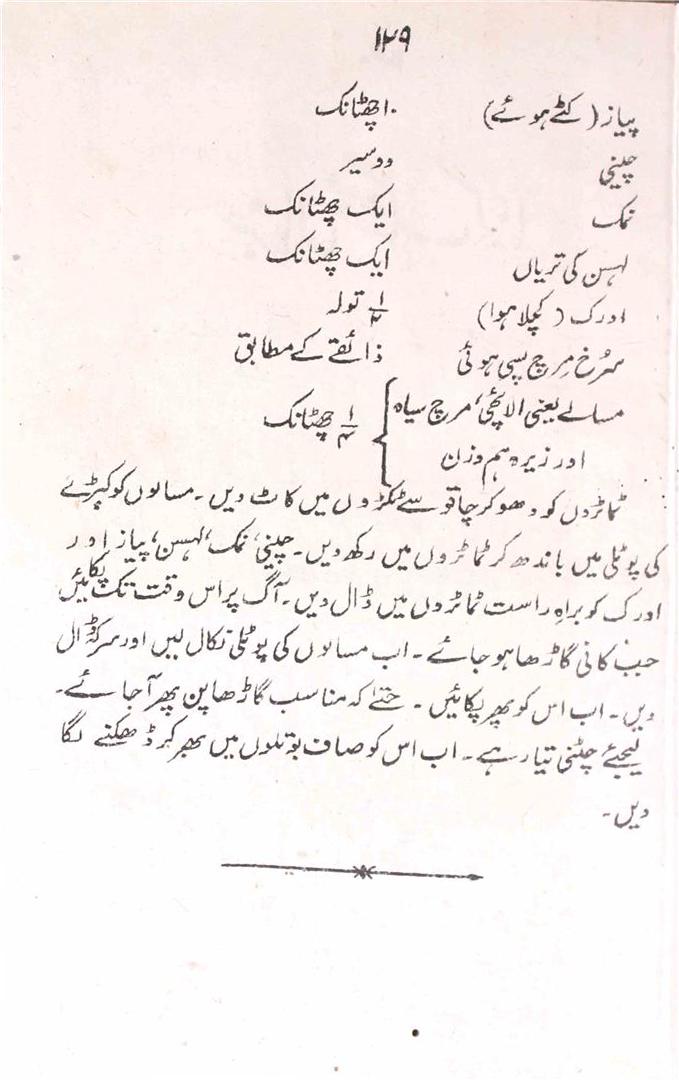 ۱۲۹
پیاز (کٹے ہوئے) ۱۰ چھٹانک
چینی دو سیر
نمک ایک چھٹانک
لہسن کی تریاں ایک چھٹانک
ادرک (کچلا ہوا) ½ تولہ
سُرخ مِرچ پسی ہوئی ذائقے کے مطابق
مسالے یعنی الائچی، مرچ سیاہ
اور زیرہ ہم وزن } ¼ چھٹانک
ٹماٹروں کو دھو کر چاقو سے ٹکڑوں میں کاٹ دیں۔ مسالوں کو کپڑے
کی پوٹلی میں باندھ کر ٹماٹروں میں رکھ دیں۔ چینی، نمک، لہسن، پیاز اور
ادرک کو براہِ راست ٹماٹروں میں ڈال دیں۔ آگ پر اس وقت تک پکائیں
جب کافی گاڑھا ہو جائے۔ اب مسالوں کی پوٹلی نکال لیں اور سرکہ ڈال
دیں۔ اب اس کو پھر پکائیں۔ حتیٰ کہ مناسب گاڑھا پن پھر آ جائے۔
لیجئے چٹنی تیار ہے۔ اب اس کو صاف بوتلوں میں بھر کر ڈھکنے لگا
دیں۔